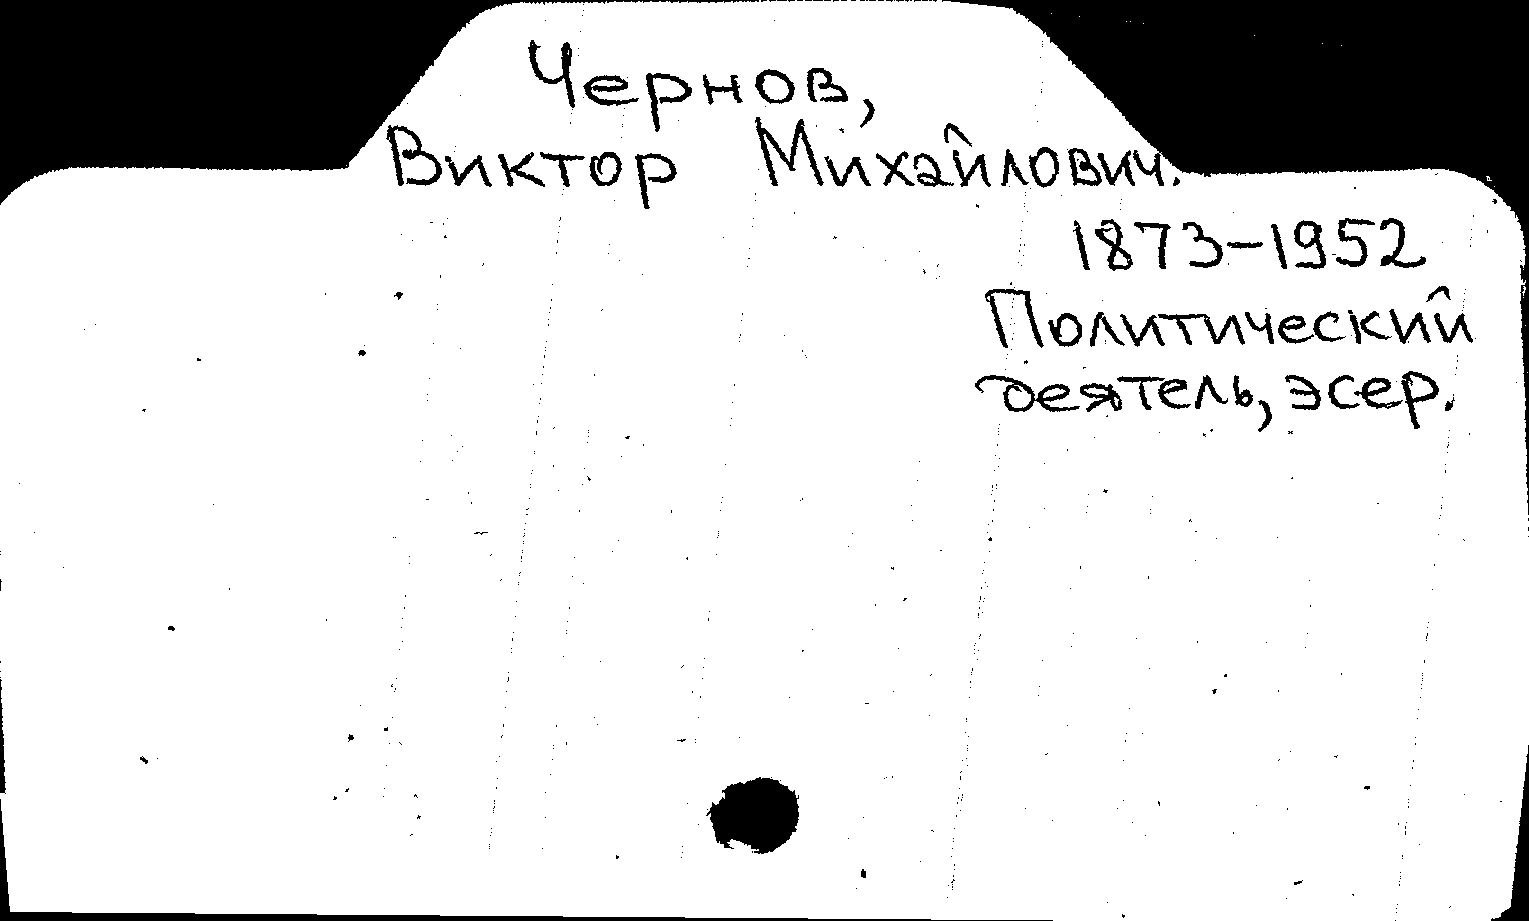 Чернов,
Виктор Михайлович.
1873-1952
Политический
деятель, эсер.